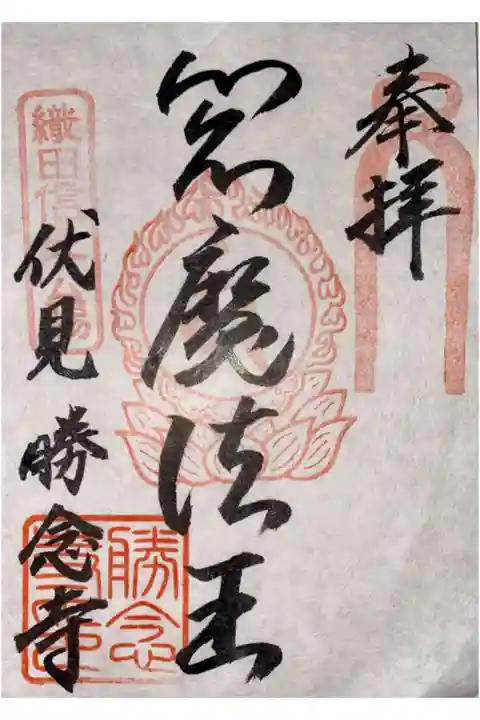 奉拝
閻魔法王
織田信 賜
伏見 勝念寺
勝念